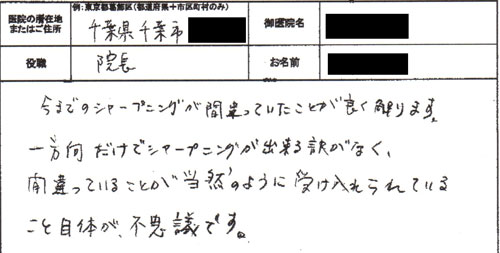 例：東京都葛飾区（都道府県＋市区町村のみ）
医院の潜在地
またはご住所
千葉県千葉市
御医院名
役職
院長
お名前
今までのシャープニングが間違っていたことが良く解ります。
一方向だけでシャープニングが出来る訳がなく、
間違っていることが"当然"のように受け入れられている
こと自体が、不思議です。